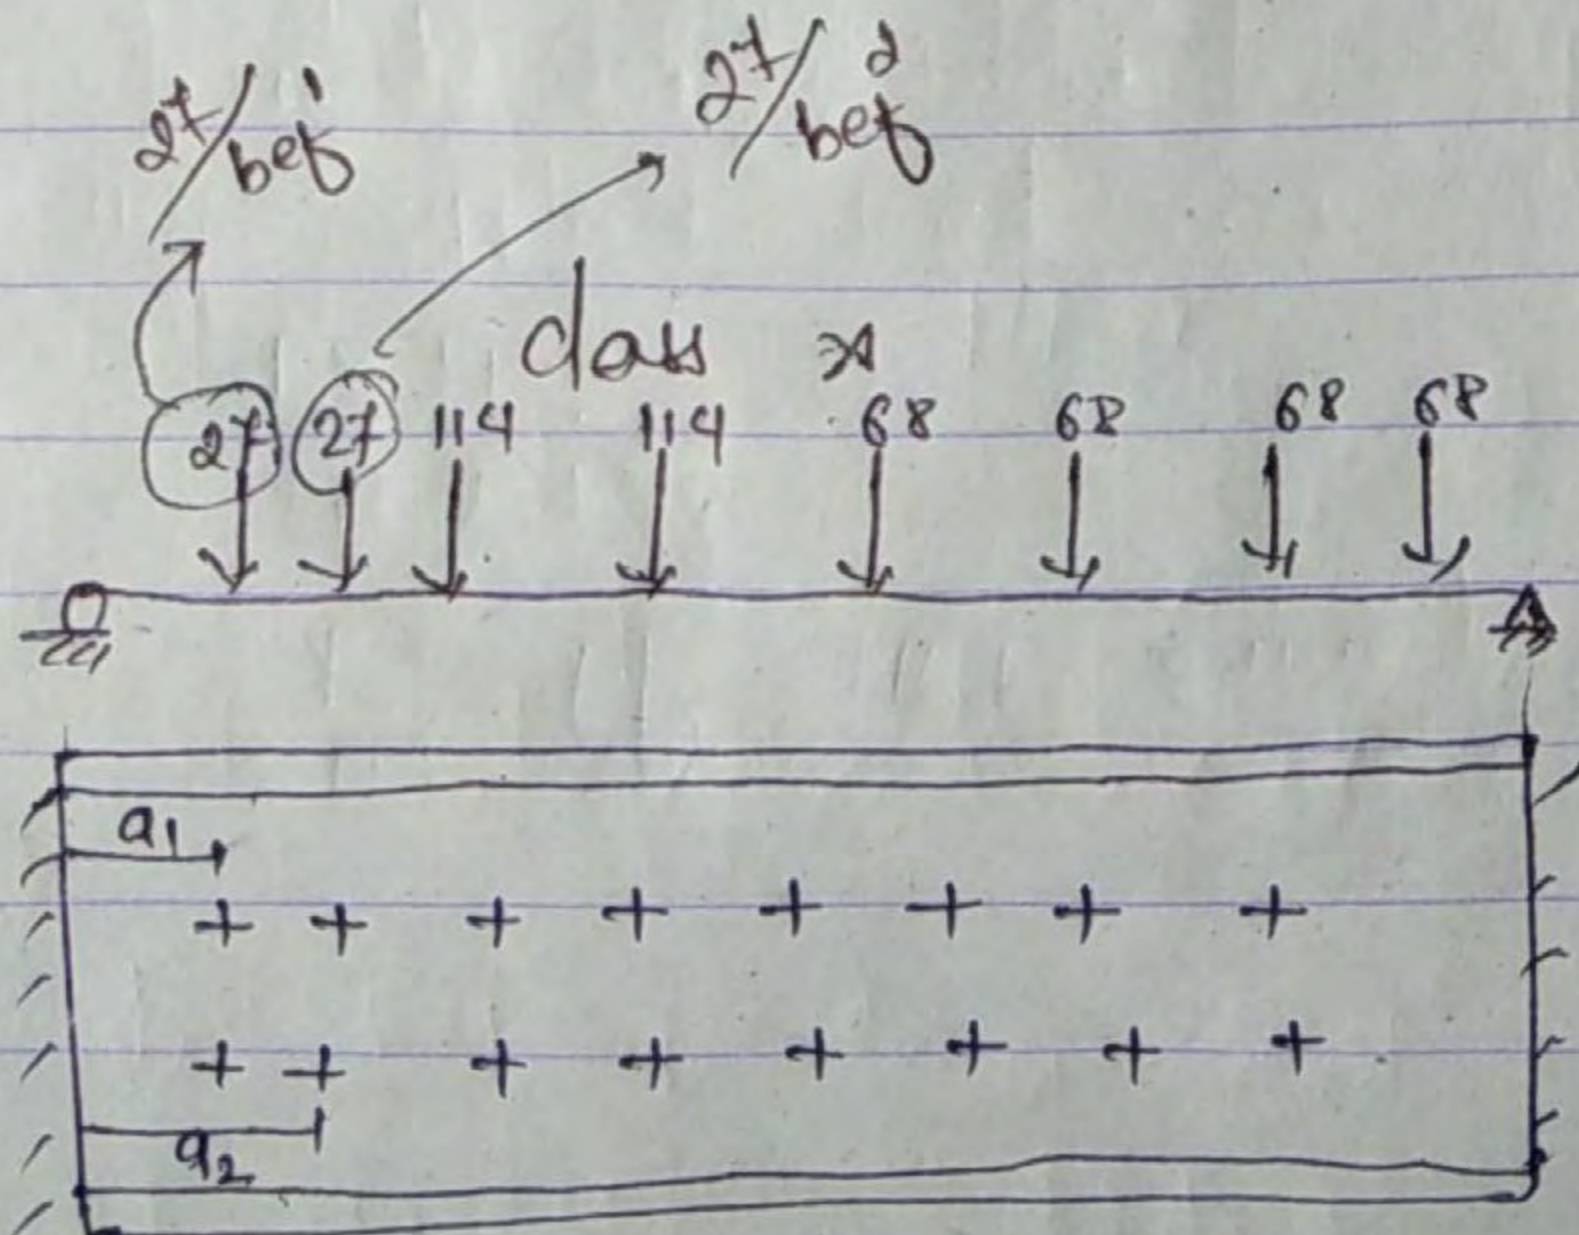 27/bef 1
27/bef 2
class A
27 27 114 114 68 68 68 68
a1
+ + + + + + + +
+ + + + + + + +
a2